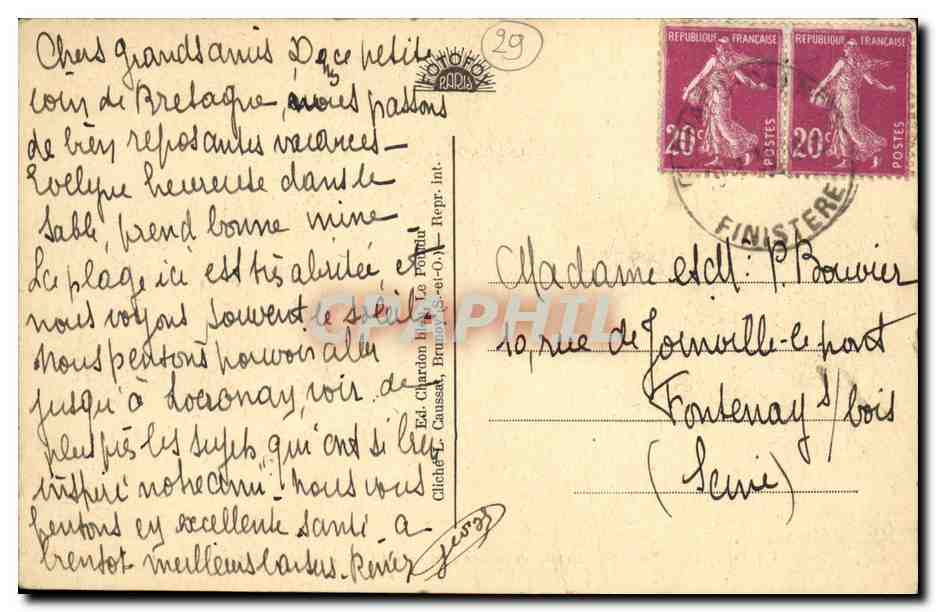 Chers grands amis De ce petit
coin de Bretagne, nous passons
de bien reposantes vacances –
Evelyne heureuse dans le
sable, prend bonne mine
La plage ici est très abritée et
nous voyons souvent le soleil.
Nous pensons pouvoir aller
jusqu'à Locronay, voir de
plus près les sujets qui ont si bien
inspiré notre ami. Nous vous
sentons en excellente santé a
bientot meilleurs baisers. Renée
29
FOTOFOX
PARIS
Ed. Chardon
Le Pouldu
Cliché L. Caussat, Brunoy (S.-et-O.) – Repr. int.
REPUBLIQUE FRANÇAISE
20c
POSTES
REPUBLIQUE FRANÇAISE
20c
POSTES
FINISTERE
Madame et M. P. Bouvier
10, rue de Joinville-le-pont
Fontenay s/bois
(Seine)
CPAPHIL